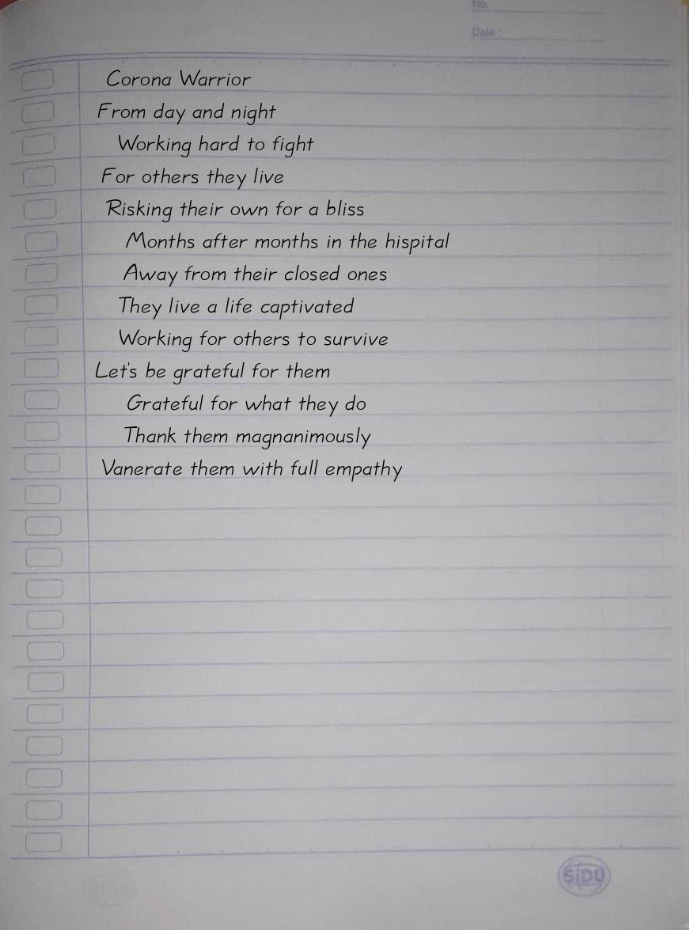 No.
Date
Corona Warrior
From day and night
Working hard to fight
For others they live
Risking their own for a bliss
Months after months in the hispital
Away from their closed ones
They live a life captivated
Working for others to survive
Let's be grateful for them
Grateful for what they do
Thank them magnanimously
Vanerate them with full empathy
SiDU